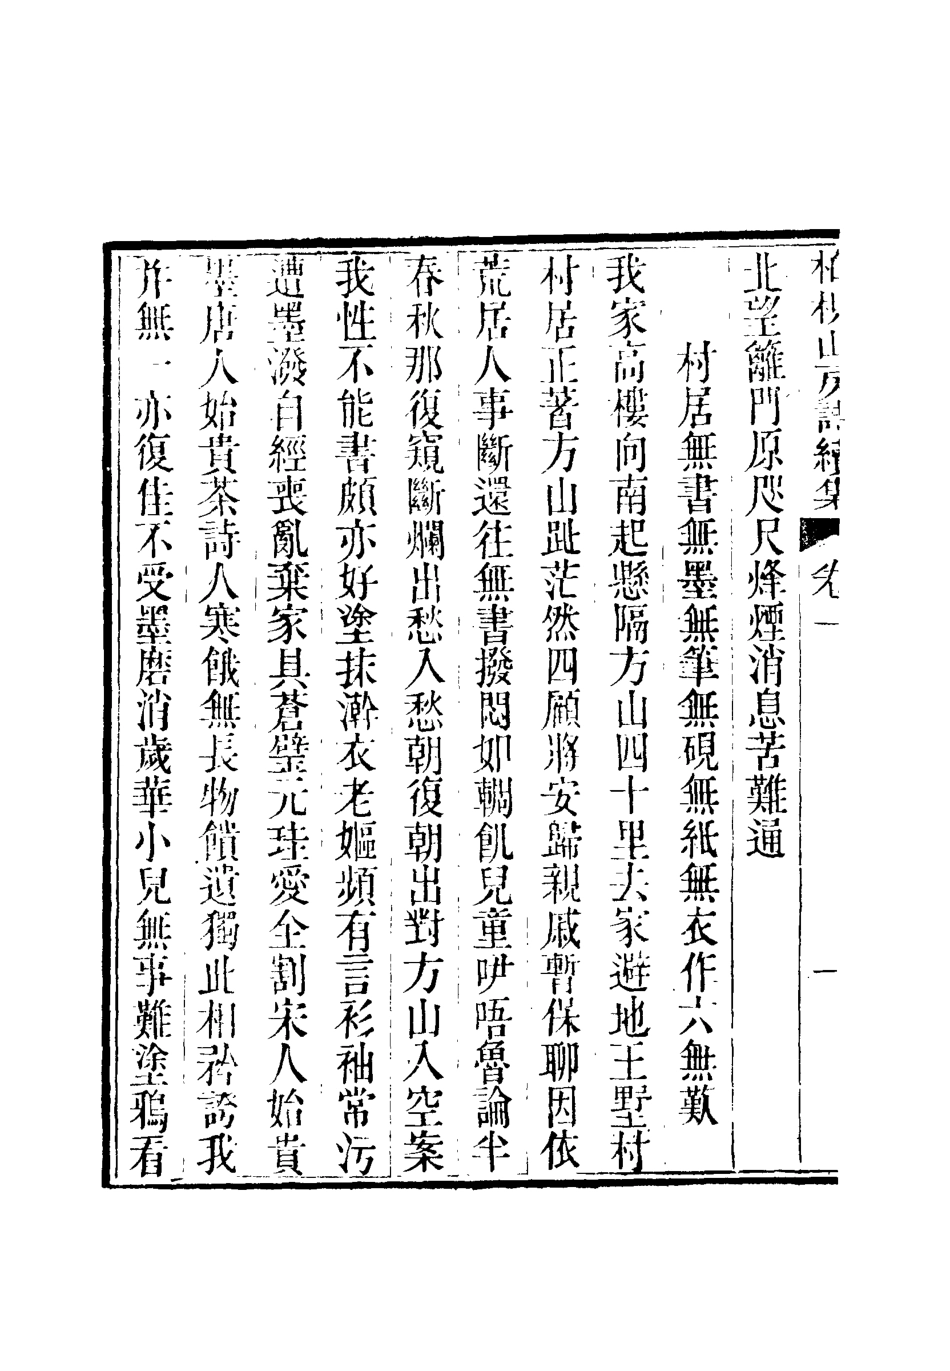 柏梘山房詩續集 卷一 一
北望籬門原咫尺烽煙消息苦難通
村居無書無墨無筆無硯無紙無衣作六無歎
我家高樓向南起懸隔方山四十里去家避地王墅村
村居正著方山趾茫然四顧將安歸親戚暫保聊因依
荒居人事斷還往無書撥悶如輖飢兒童吚唔魯論半
春秋那復窺斷爛出愁入愁朝復朝出對方山入空案
我性不能書頗亦好塗抹澣衣老嫗頻有言衫袖常污
遭墨潑自經喪亂棄家具蒼璧元珪愛全割宋人始貴
墨唐人始貴茶詩人寒餓無長物饋遺獨此相矜誇我
并無一亦復佳不受墨磨消歲華小兒無事難塗鴉看